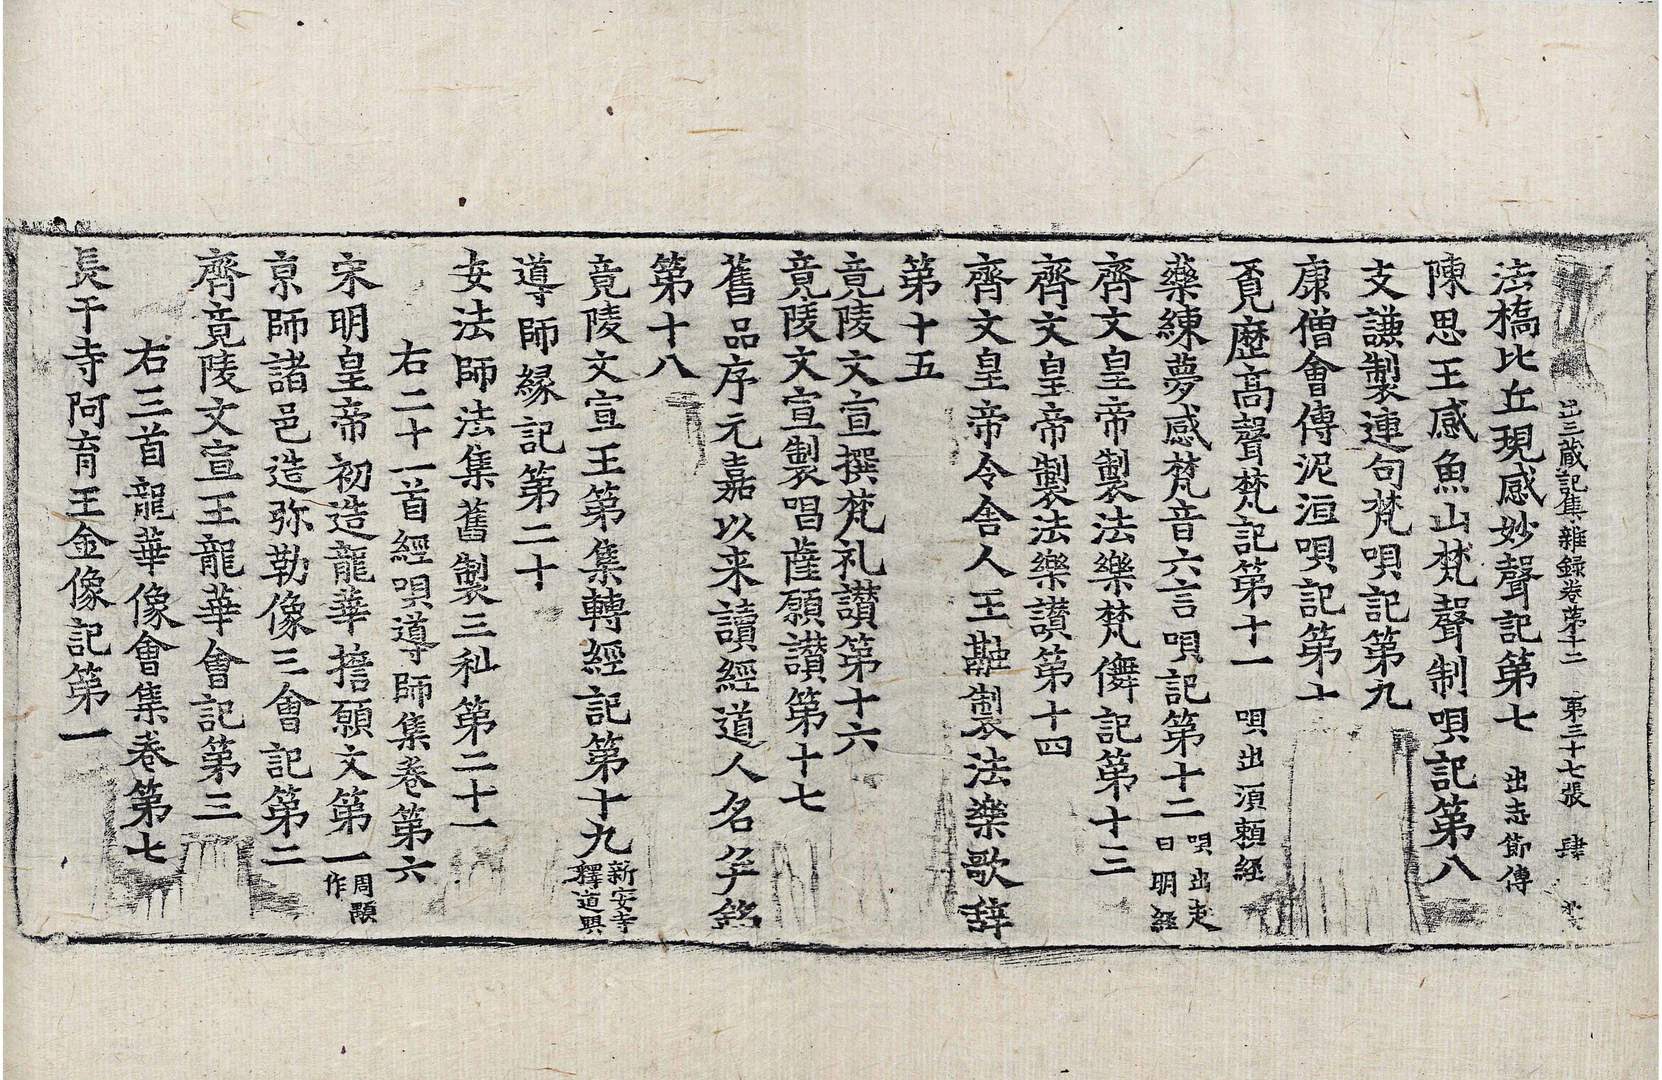 出三藏記集雜録卷第十二　第三十七張　肆
法橋比丘現感妙聲記第七　出志節傳
陳思王感魚山梵聲制唄記第八
支謙製連句梵唄記第九
康僧會傳泥洹唄記第十
覓歷高聲梵記第十一　唄出須賴經
藥練夢感梵音六言唄記第十二　唄出走日明經
齊文皇帝製法樂梵儛記第十三
齊文皇帝製法樂讃第十四
齊文皇帝令舍人王融制法樂歌辞
第十五
竟陵文宣撰梵礼讃第十六
竟陵文宣製唱薩願讃第十七
舊品序元嘉以来讀經道人名字銘
第十八
竟陵文宣王第集轉經記第十九　新安寺釋道興
導師縁記第二十
安法師法集舊製三科第二十一
右二十一首經唄導師集卷第六
宋明皇帝初造龍華擔願文第一　周顒作
京師諸邑造弥勒像三會記第二
齊竟陵文宣王龍華會記第三
右三首龍華像會集卷第七
長干寺阿育王金像記第一